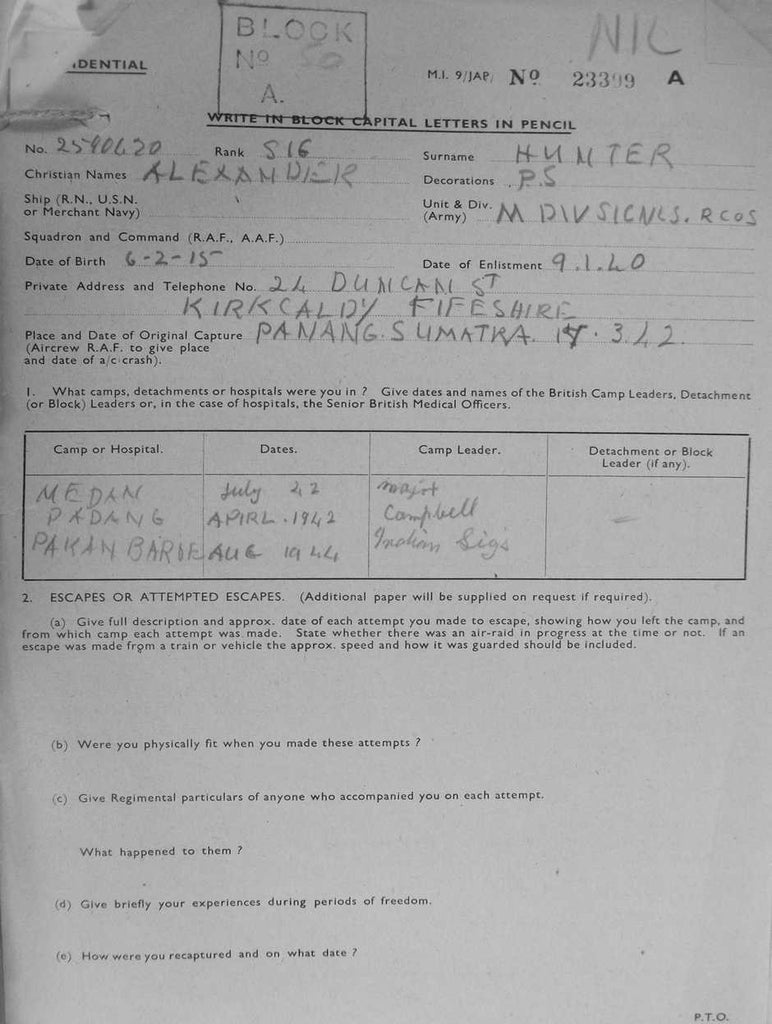 BLOCK
No 50
A.
NIL
IDENTIAL
M.I. 9/JAP. No 23399 A
WRITE IN BLOCK CAPITAL LETTERS IN PENCIL
No. 2590620 Rank SIG Surname HUNTER
Christian Names ALEXANDER Decorations P.S
Ship (R.N., U.S.N.
or Merchant Navy)
Unit & Div.
(Army) M DIV SIGNLS. R COS
Squadron and Command (R.A.F., A.A.F.)
Date of Birth 6-2-15 Date of Enlistment 9.1.40
Private Address and Telephone No. 24 DUNCAN ST
KIRKCALDY FIFESHIRE
Place and Date of Original Capture PANANG. SUMATRA. 17.3.42.
(Aircrew R.A.F. to give place
and date of a/c crash).
1. What camps, detachments or hospitals were you in ? Give dates and names of the British Camp Leaders, Detachment
(or Block) Leaders or, in the case of hospitals, the Senior British Medical Officers.
Camp or Hospital. Dates. Camp Leader. Detachment or Block
Leader (if any).
MEDAN July 42 Major
PADANG APIRL. 1942 Campbell –
PAKAN BAROE AUG 1944 Indian Sigs
2. ESCAPES OR ATTEMPTED ESCAPES. (Additional paper will be supplied on request if required).
(a) Give full description and approx. date of each attempt you made to escape, showing how you left the camp, and
from which camp each attempt was made. State whether there was an air-raid in progress at the time or not. If an
escape was made from a train or vehicle the approx. speed and how it was guarded should be included.
(b) Were you physically fit when you made these attempts ?
(c) Give Regimental particulars of anyone who accompanied you on each attempt.
What happened to them ?
(d) Give briefly your experiences during periods of freedom.
(e) How were you recaptured and on what date ?
P.T.O.